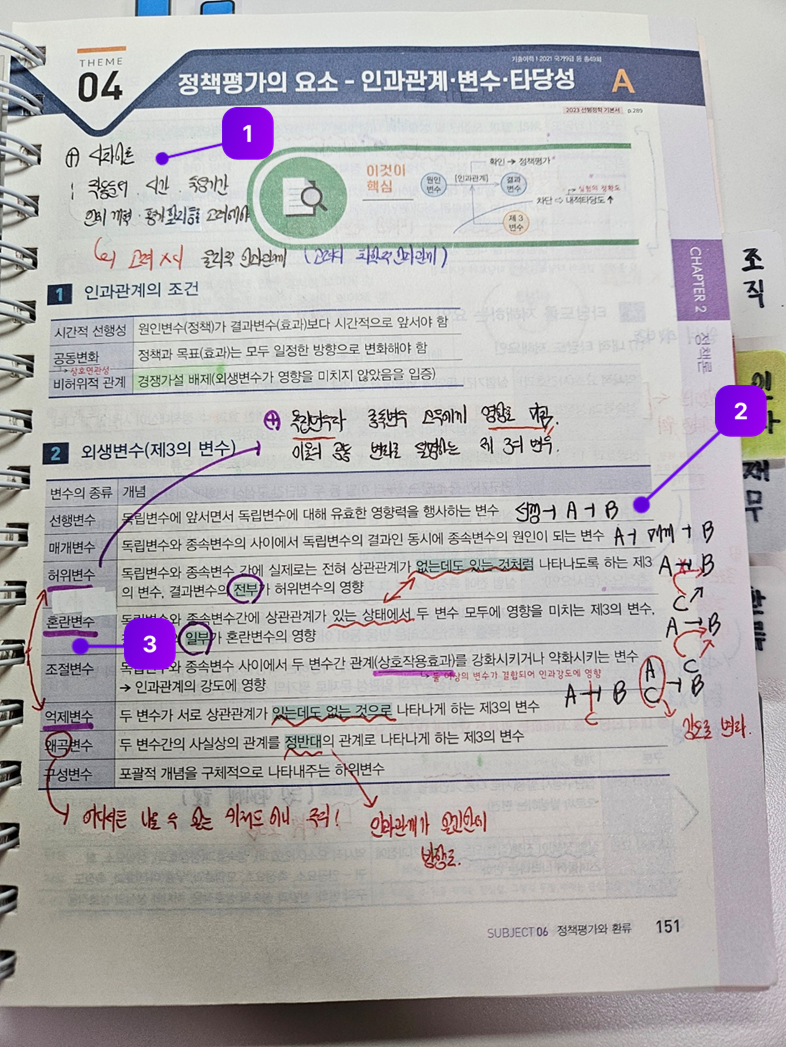 THEME
04
정책평가의 요소 - 인과관계·변수·타당성 A
기출이력 | 2021 국가9급 등 총40회
2023 선행정학 기본서 p.285
1
이것이
핵심
원인
변수
[인과관계]
결과
변수
확인 → 정책평가
실험의 정확도
차단 ⇒ 내적타당도 ↑
제 3
변수
CHAPTER 2
정책론
조직
인사
재무
1 인과관계의 조건
시간적 선행성 원인변수(정책)가 결과변수(효과)보다 시간적으로 앞서야 함
공동변화 정책과 목표(효과)는 모두 일정한 방향으로 변화해야 함
→ 상호연관성
비허위적 관계 경쟁가설 배제(외생변수가 영향을 미치지 않았음을 입증)
2
⊕ 독립변수와 종속변수 모두에게 영향을 미침.
이들의 공동 변화를 설명하는 제 3의 변수.
2 외생변수(제3의 변수)
변수의 종류 개념
선행변수 독립변수에 앞서면서 독립변수에 대해 유효한 영향력을 행사하는 변수 선행→ A → B
매개변수 독립변수와 종속변수의 사이에서 독립변수의 결과인 동시에 종속변수의 원인이 되는 변수 A → 매개 → B
허위변수 독립변수와 종속변수 간에 실제로는 전혀 상관관계가 없는데도 있는 것처럼 나타나도록 하는 제3
의 변수, 결과변수의 전부가 허위변수의 영향
A → B
C
혼란변수 독립변수와 종속변수간에 상관관계가 있는 상태에서 두 변수 모두에 영향을 미치는 제3의 변수,
일부가 혼란변수의 영향
A → B
C
3
조절변수 독립변수와 종속변수 사이에서 두 변수간 관계(상호작용효과)를 강화시키거나 약화시키는 변수
→ 인과관계의 강도에 영향
→ 둘 이상의 변수가 결합되어 인과강도에 영향
A → B
C
A
C → B
강도로 변화.
억제변수 두 변수가 서로 상관관계가 있는데도 없는 것으로 나타나게 하는 제3의 변수
왜곡변수 두 변수간의 사실상의 관계를 정반대의 관계로 나타나게 하는 제3의 변수
구성변수 포괄적 개념을 구체적으로 나타내주는 하위변수
어디서든 나올 수 있는 키워드이니 주의!
인과관계가 온전안이
방향로.
SUBJECT 06 정책평가와 환류 151